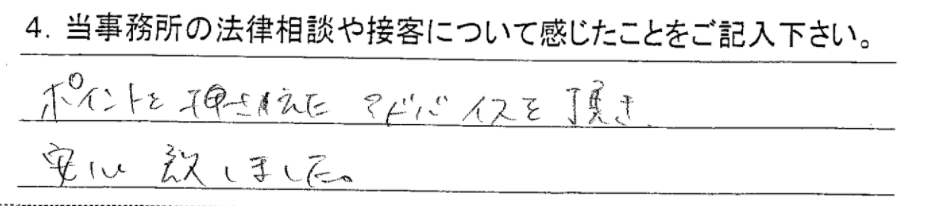 4. 当事務所の法律相談や接客について感じたことをご記入下さい。
ポイントを押さえた アドバイスを 頂き
安心 致しました。